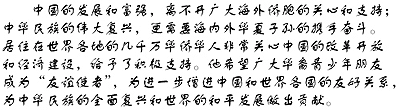 中国的发展和富强，离不开广大海外侨胞的关心和支持；
中华民族的伟大复兴，更需要海内外华夏子孙的携手奋斗。
居住在世界各地的几千万华侨华人非常关心中国的改革开放
和经济建设，给予了积极支持。他希望广大华裔青少年朋友
成为“友谊使者”，为进一步增进中国和世界各国的友好关系，
为中华民族的全面复兴和世界的和平发展做出贡献。